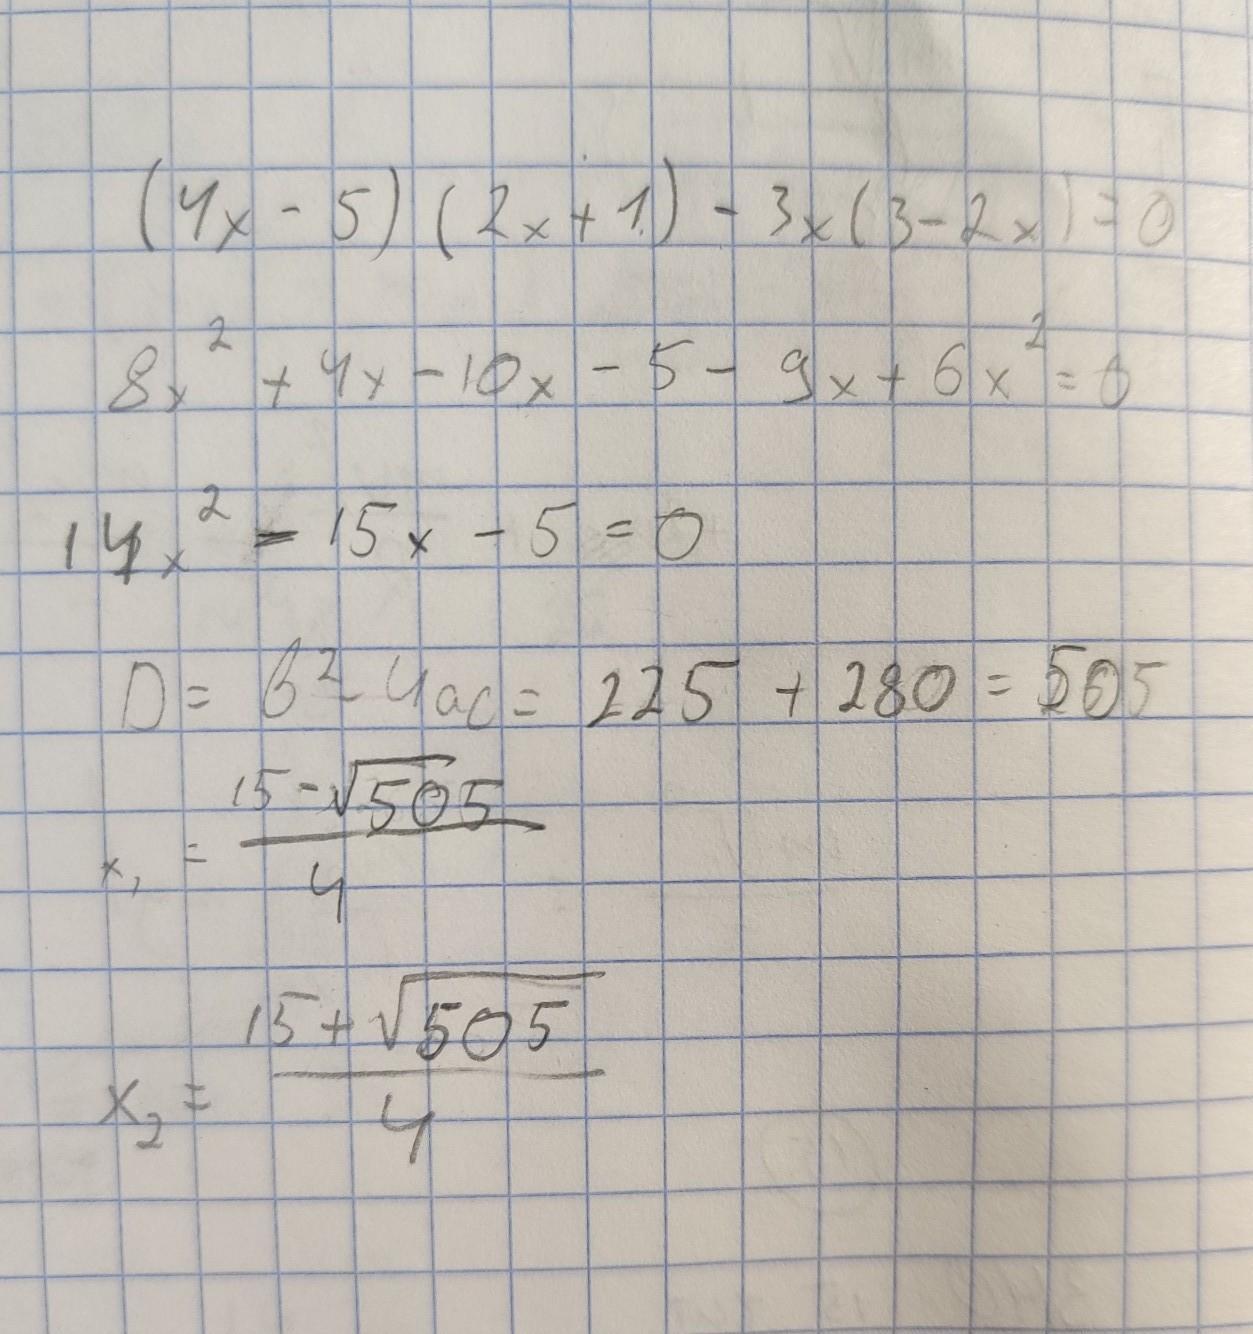 (4x - 5) (2x + 1) - 3x (3 - 2x) = 0
8x² + 4x - 10x - 5 - 9x + 6x² = 0
14x² - 15x - 5 = 0
D = b² - 4ac = 225 + 280 = 505
x₁ = (15 - √505) / 4
x₂ = (15 + √505) / 4